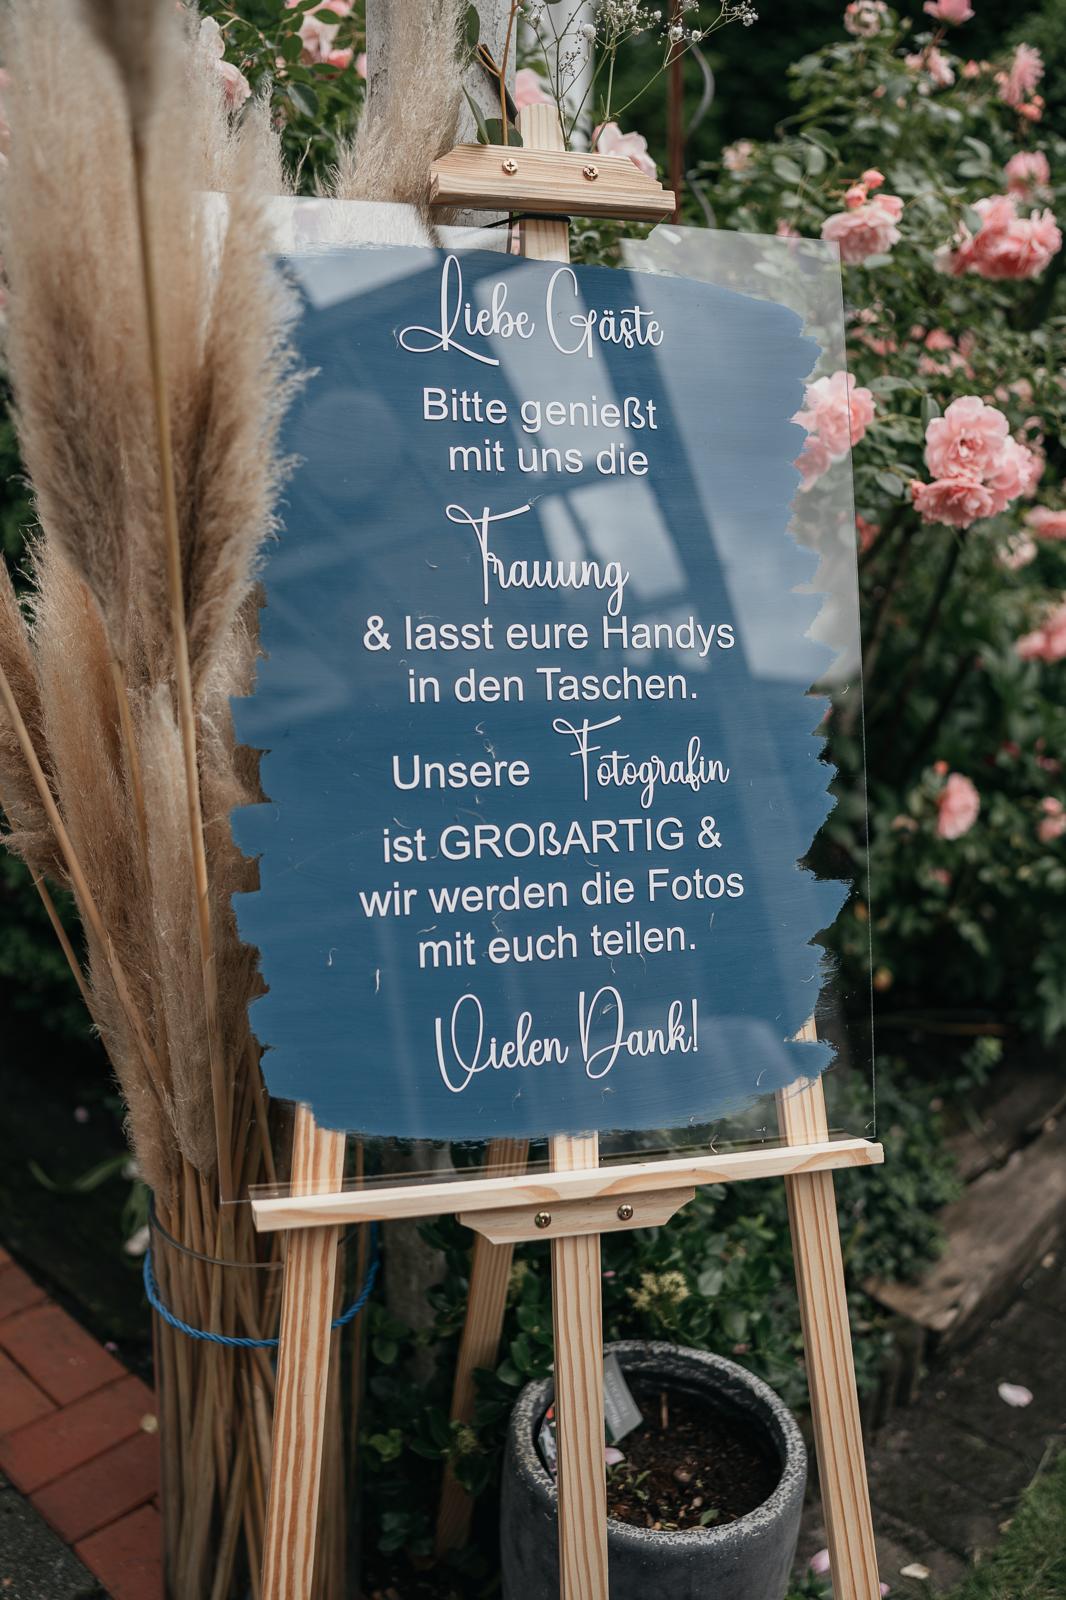 Liebe Gäste
Bitte genießt
mit uns die
Trauung
& lasst eure Handys
in den Taschen.
Unsere Fotografin
ist GROßARTIG &
wir werden die Fotos
mit euch teilen.
Vielen Dank!